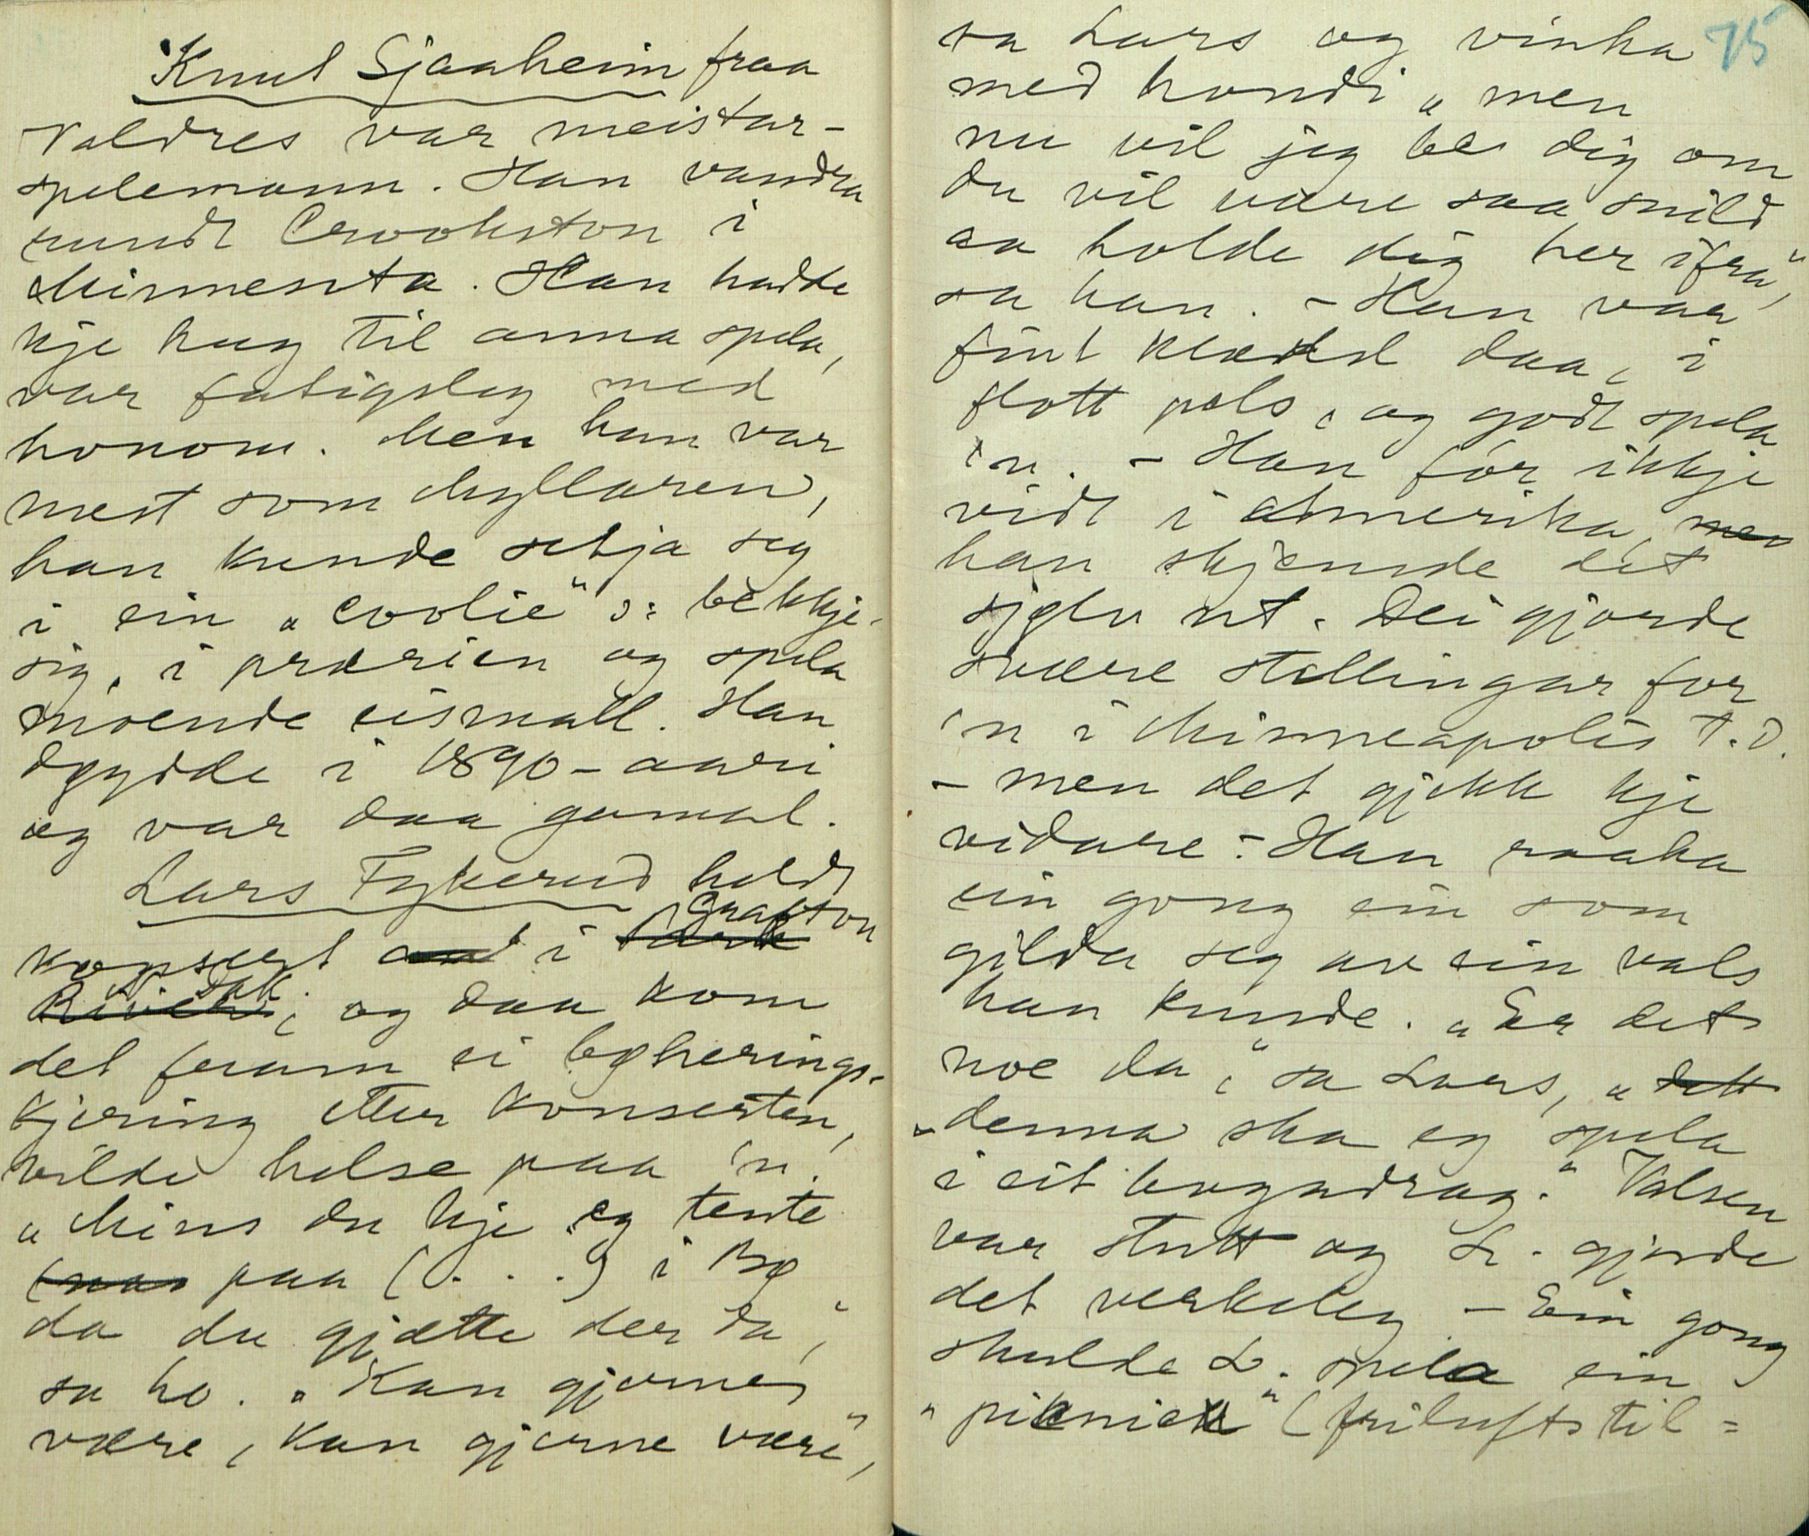 Knut Sjaaheim fraa
Valdres var meistar-
spelemann. Han vandra
rundt Crookston i
Minnesota. Han hadde
kje hug til anna spela,
var fatigsleg med
honom. Men han var
mest som Myllaren,
han kunde setja seg
i ein „coolie" ɔ: bekkje-
sig, i prærien og spela
moende eismall. Han
døydde i 1890-aari
og var daa gamal.
Lars Fykerud heldt
konsert i Grafton
N. Dak, og daa kom
det fram ei
kjering etter konserten,
vilde helse paa 'n.
„Mins du kje eg tente
paa (. . .) i Bø
da du gjætte der da",
sa ho. „Kan gjerne
være, kan gjerne være",
75
sa Lars og vinka
med hondi „men
nu vil jeg be dig om
du vil være saa snild
aa holde dig her ifra",
sa han. – Han var
fint klædd daa, i
flott pels, og godt spela
'n. – Han för ikkje
vidt i Amerika,
han skjemde det
sjølv ut. Dei gjorde
svære stellingar for
'n i Minneapolis t. d.
– men det gjekk kje
vidare – Han raaka
ein gong ein som
gilda seg av ein vals
han kunde. „Er det
noe da", sa Lars, „dett
denna ska eg spela
i eit bogadrag." Valsen
var stutt og L. gjorde
det verkeleg. – Ein gong
skulde L. spela ein
„picnick" (friluftstil=